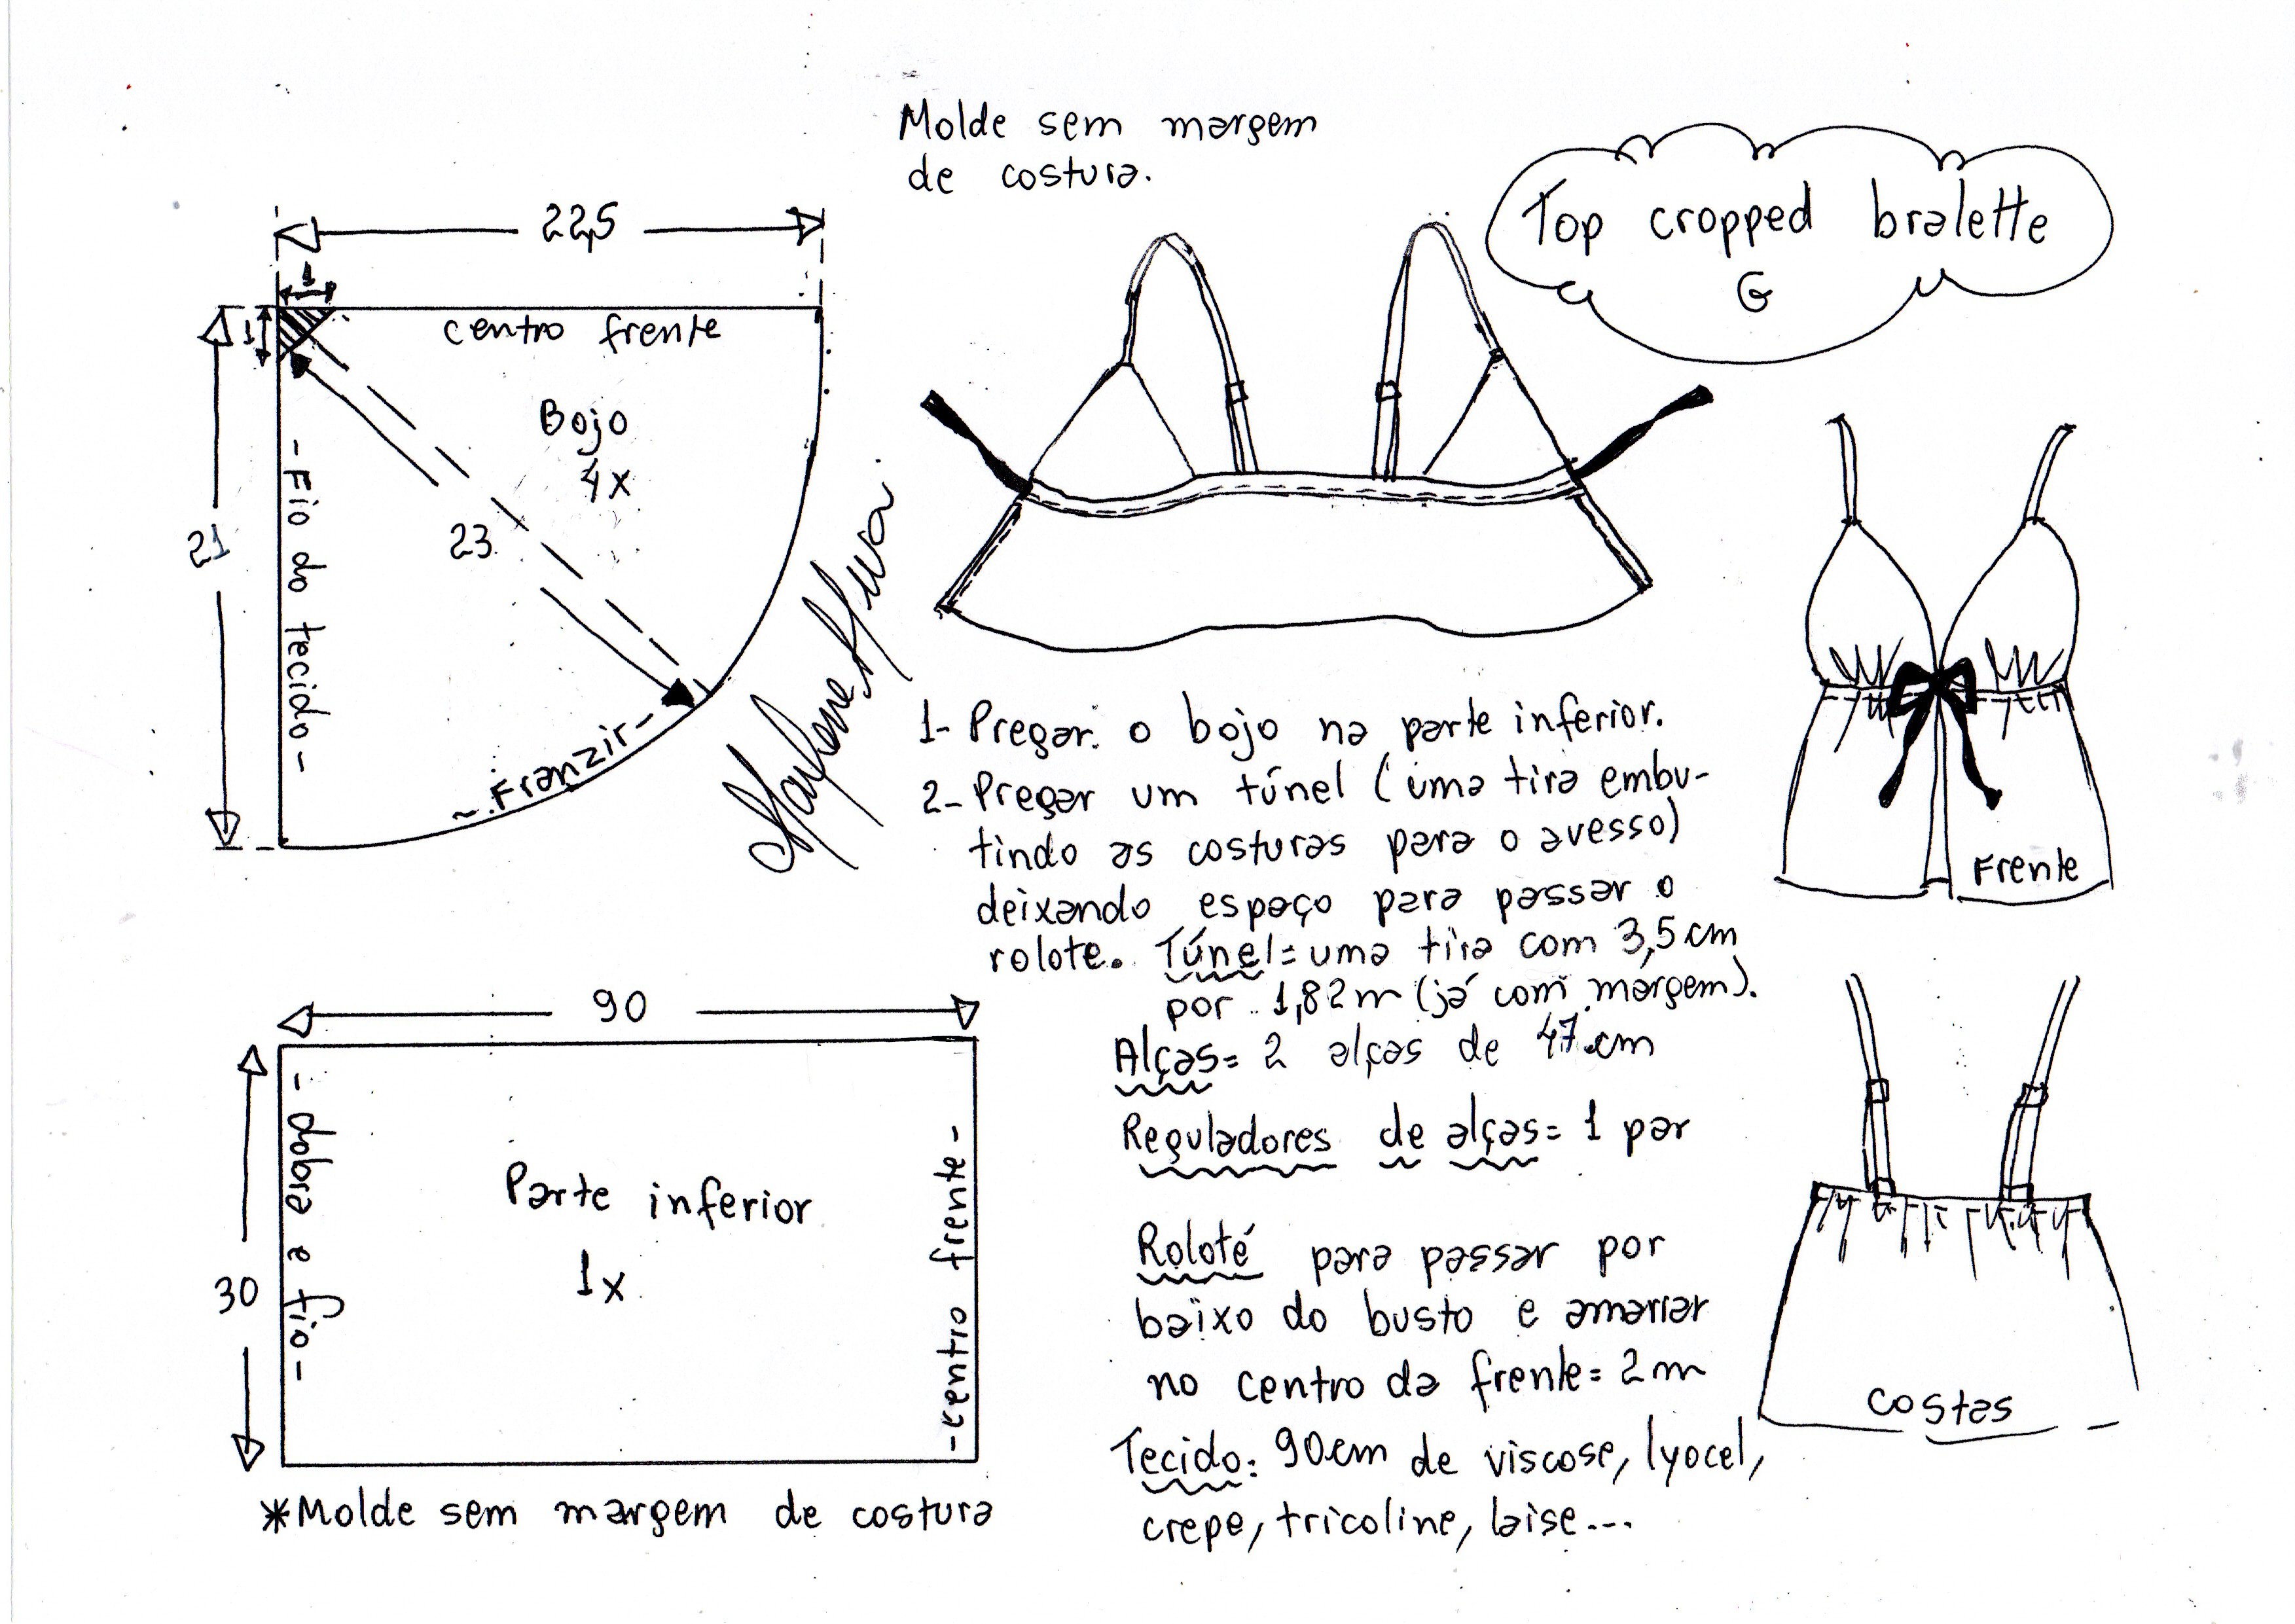 Molde sem margem
de costura.
Top cropped bralette
G
22,5
1
1
centro frente
Bojo
4x
21
- Fio do tecido -
23
- Franzir -
1- Pregar o bojo na parte inferior.
2- Pregar um túnel (uma tira embu-
tindo as costuras para o avesso)
deixando espaço para passar o
rolote. Túnel = uma tira com 3,5 cm
por 1,82 m (já com margem).
Alças = 2 alças de 47 cm
Reguladores de alças = 1 par
Roloté para passar por
baixo do busto e amarrar
no centro da frente = 2 m
Tecido: 90 cm de viscose, lyocel,
crepe, tricoline, laise...
Frente
Costas
90
30
- Dobra e fio -
Parte inferior
1x
- centro frente -
*Molde sem margem de costura